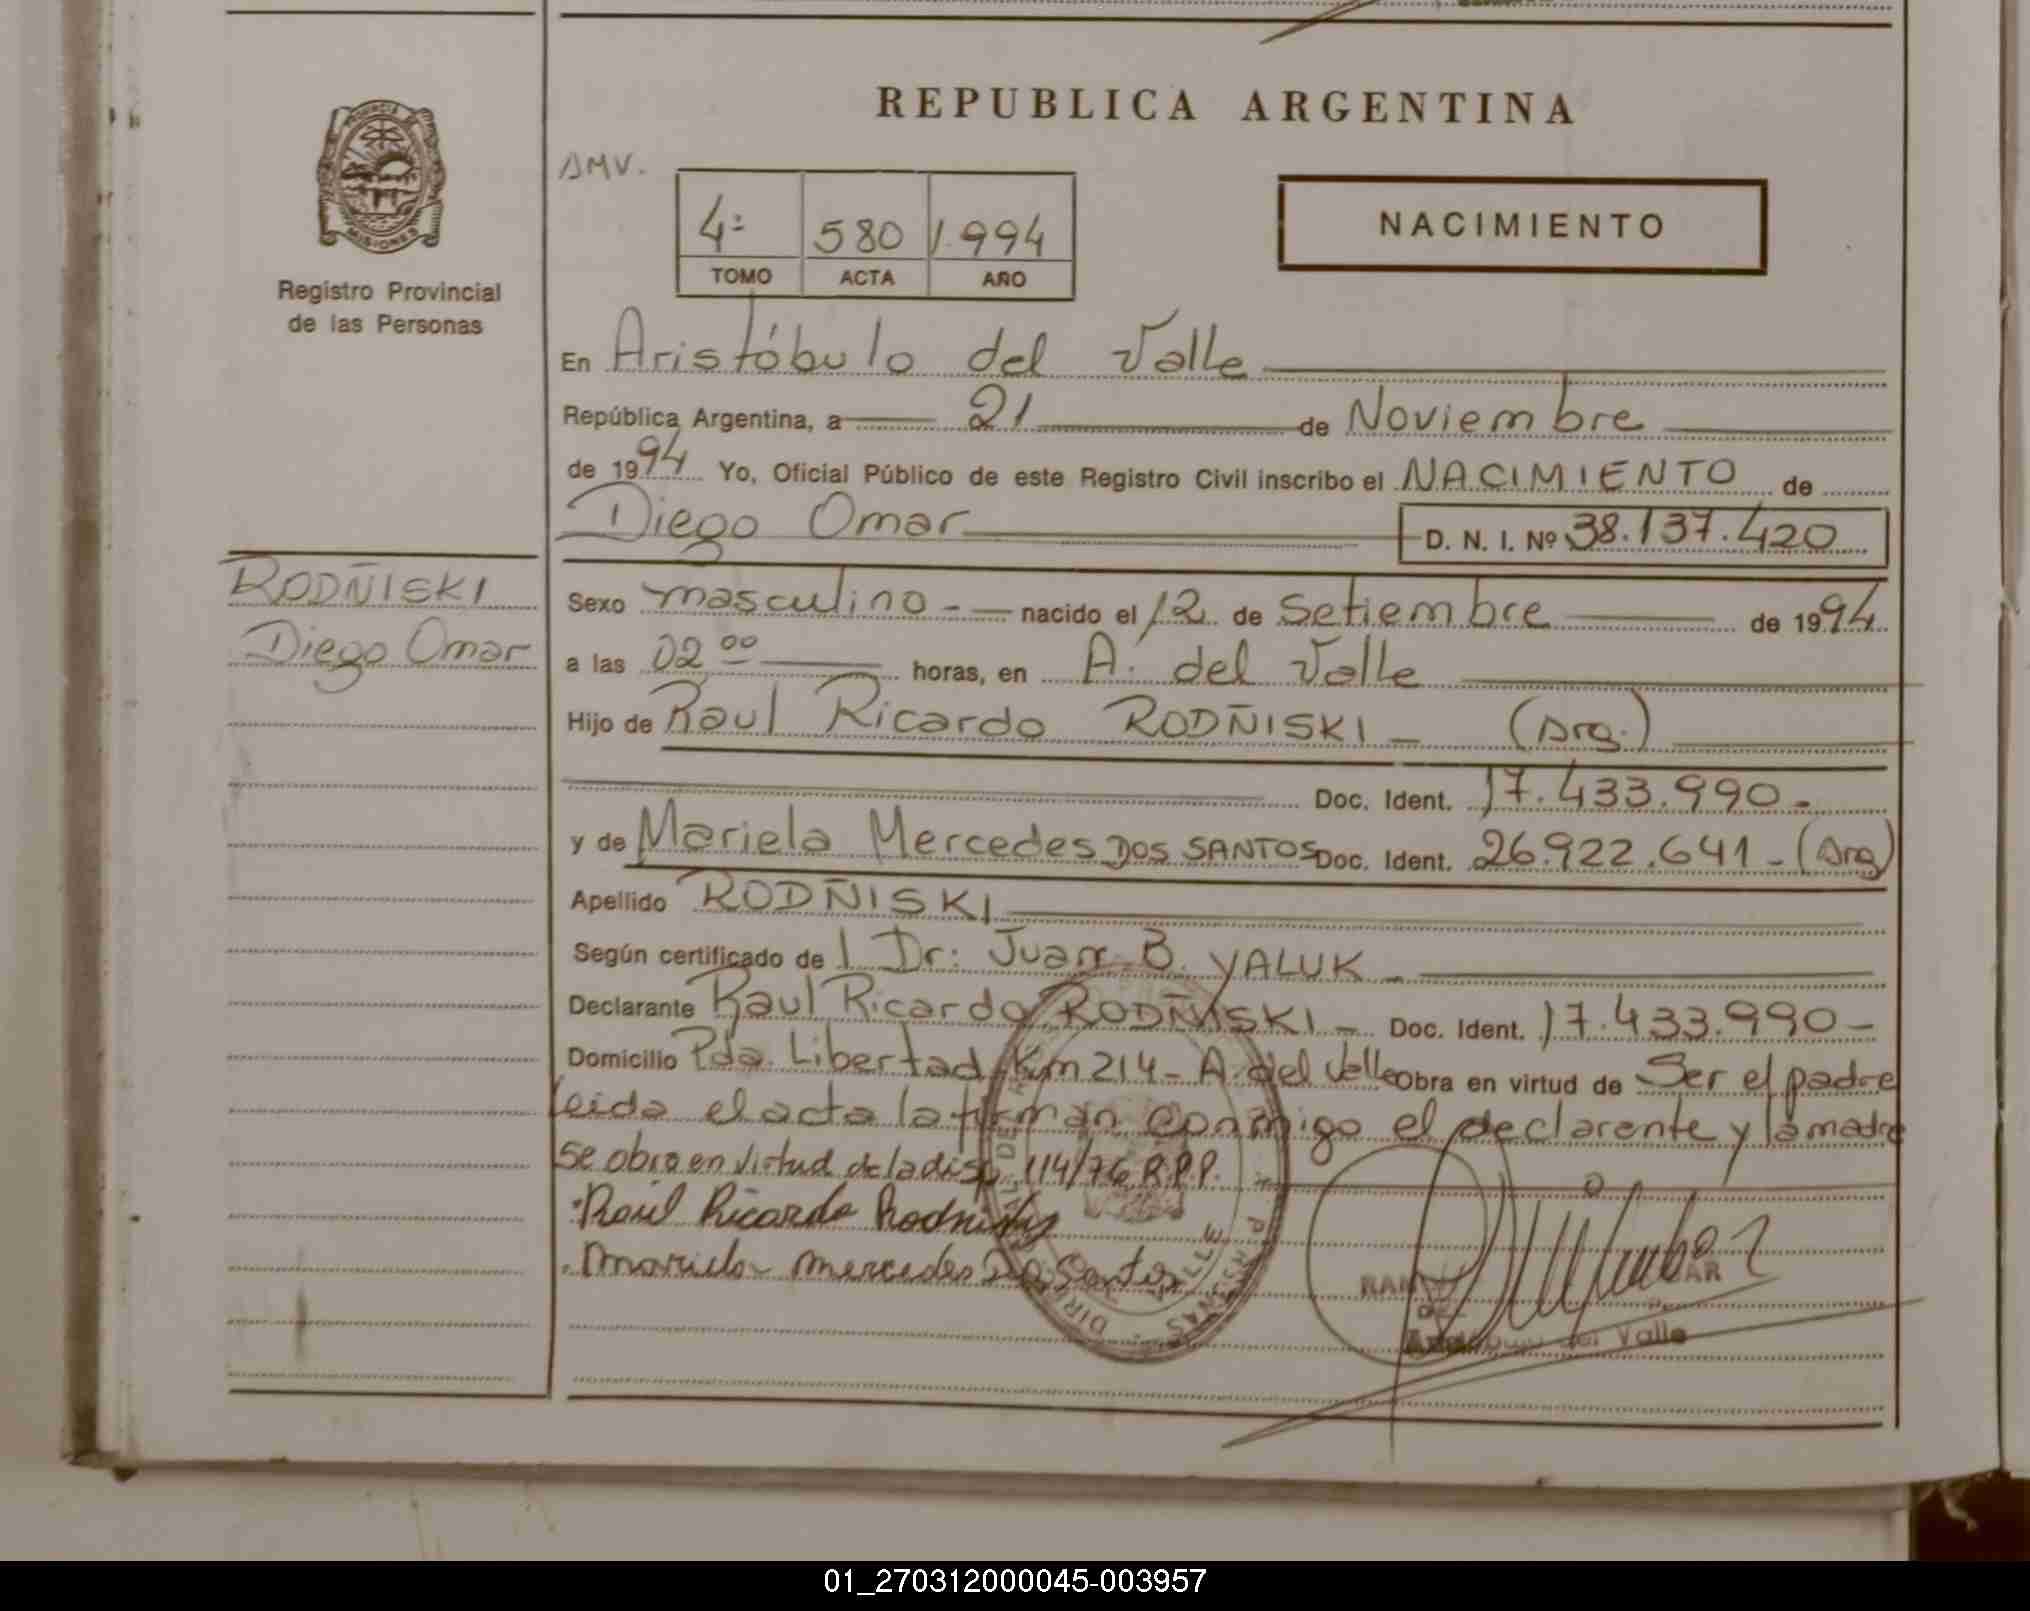 REPUBLICA ARGENTINA
PROVINCIA DE
MISIONES
Registro Provincial
de las Personas
AMV.
4º 580 1.994
TOMO ACTA AÑO
NACIMIENTO
En Aristóbulo del Valle
República Argentina, a 21 de Noviembre
de 1994 Yo, Oficial Público de este Registro Civil inscribo el NACIMIENTO de
Diego Omar D. N. I. Nº 38.137.420
RODÑISKI
Diego Omar
Sexo masculino - nacido el 12 de Setiembre de 1994
a las 02 00 horas, en A. del Valle
Hijo de Raul Ricardo RODÑISKI - (Arg.)
Doc. Ident. 17.433.990-
y de Mariela Mercedes DOS SANTOS Doc. Ident. 26.922.641-(Arg)
Apellido RODÑISKI
Según certificado de l Dr: Juan B. YALUK -
Declarante Raul Ricardo RODÑISKI - Doc. Ident. 17.433.990-
Domicilio Pda. Libertad Km 214- A. del Valle obra en virtud de Ser el padre
leida el acta la firman conmigo el declarente y la madre
se obra en virtud de la disp. 114/76 R.P.P.
Raúl Ricardo Rodñisky
Mariela Mercedes Dos Santos
Aristóbulo del Valle
01_270312000045-003957